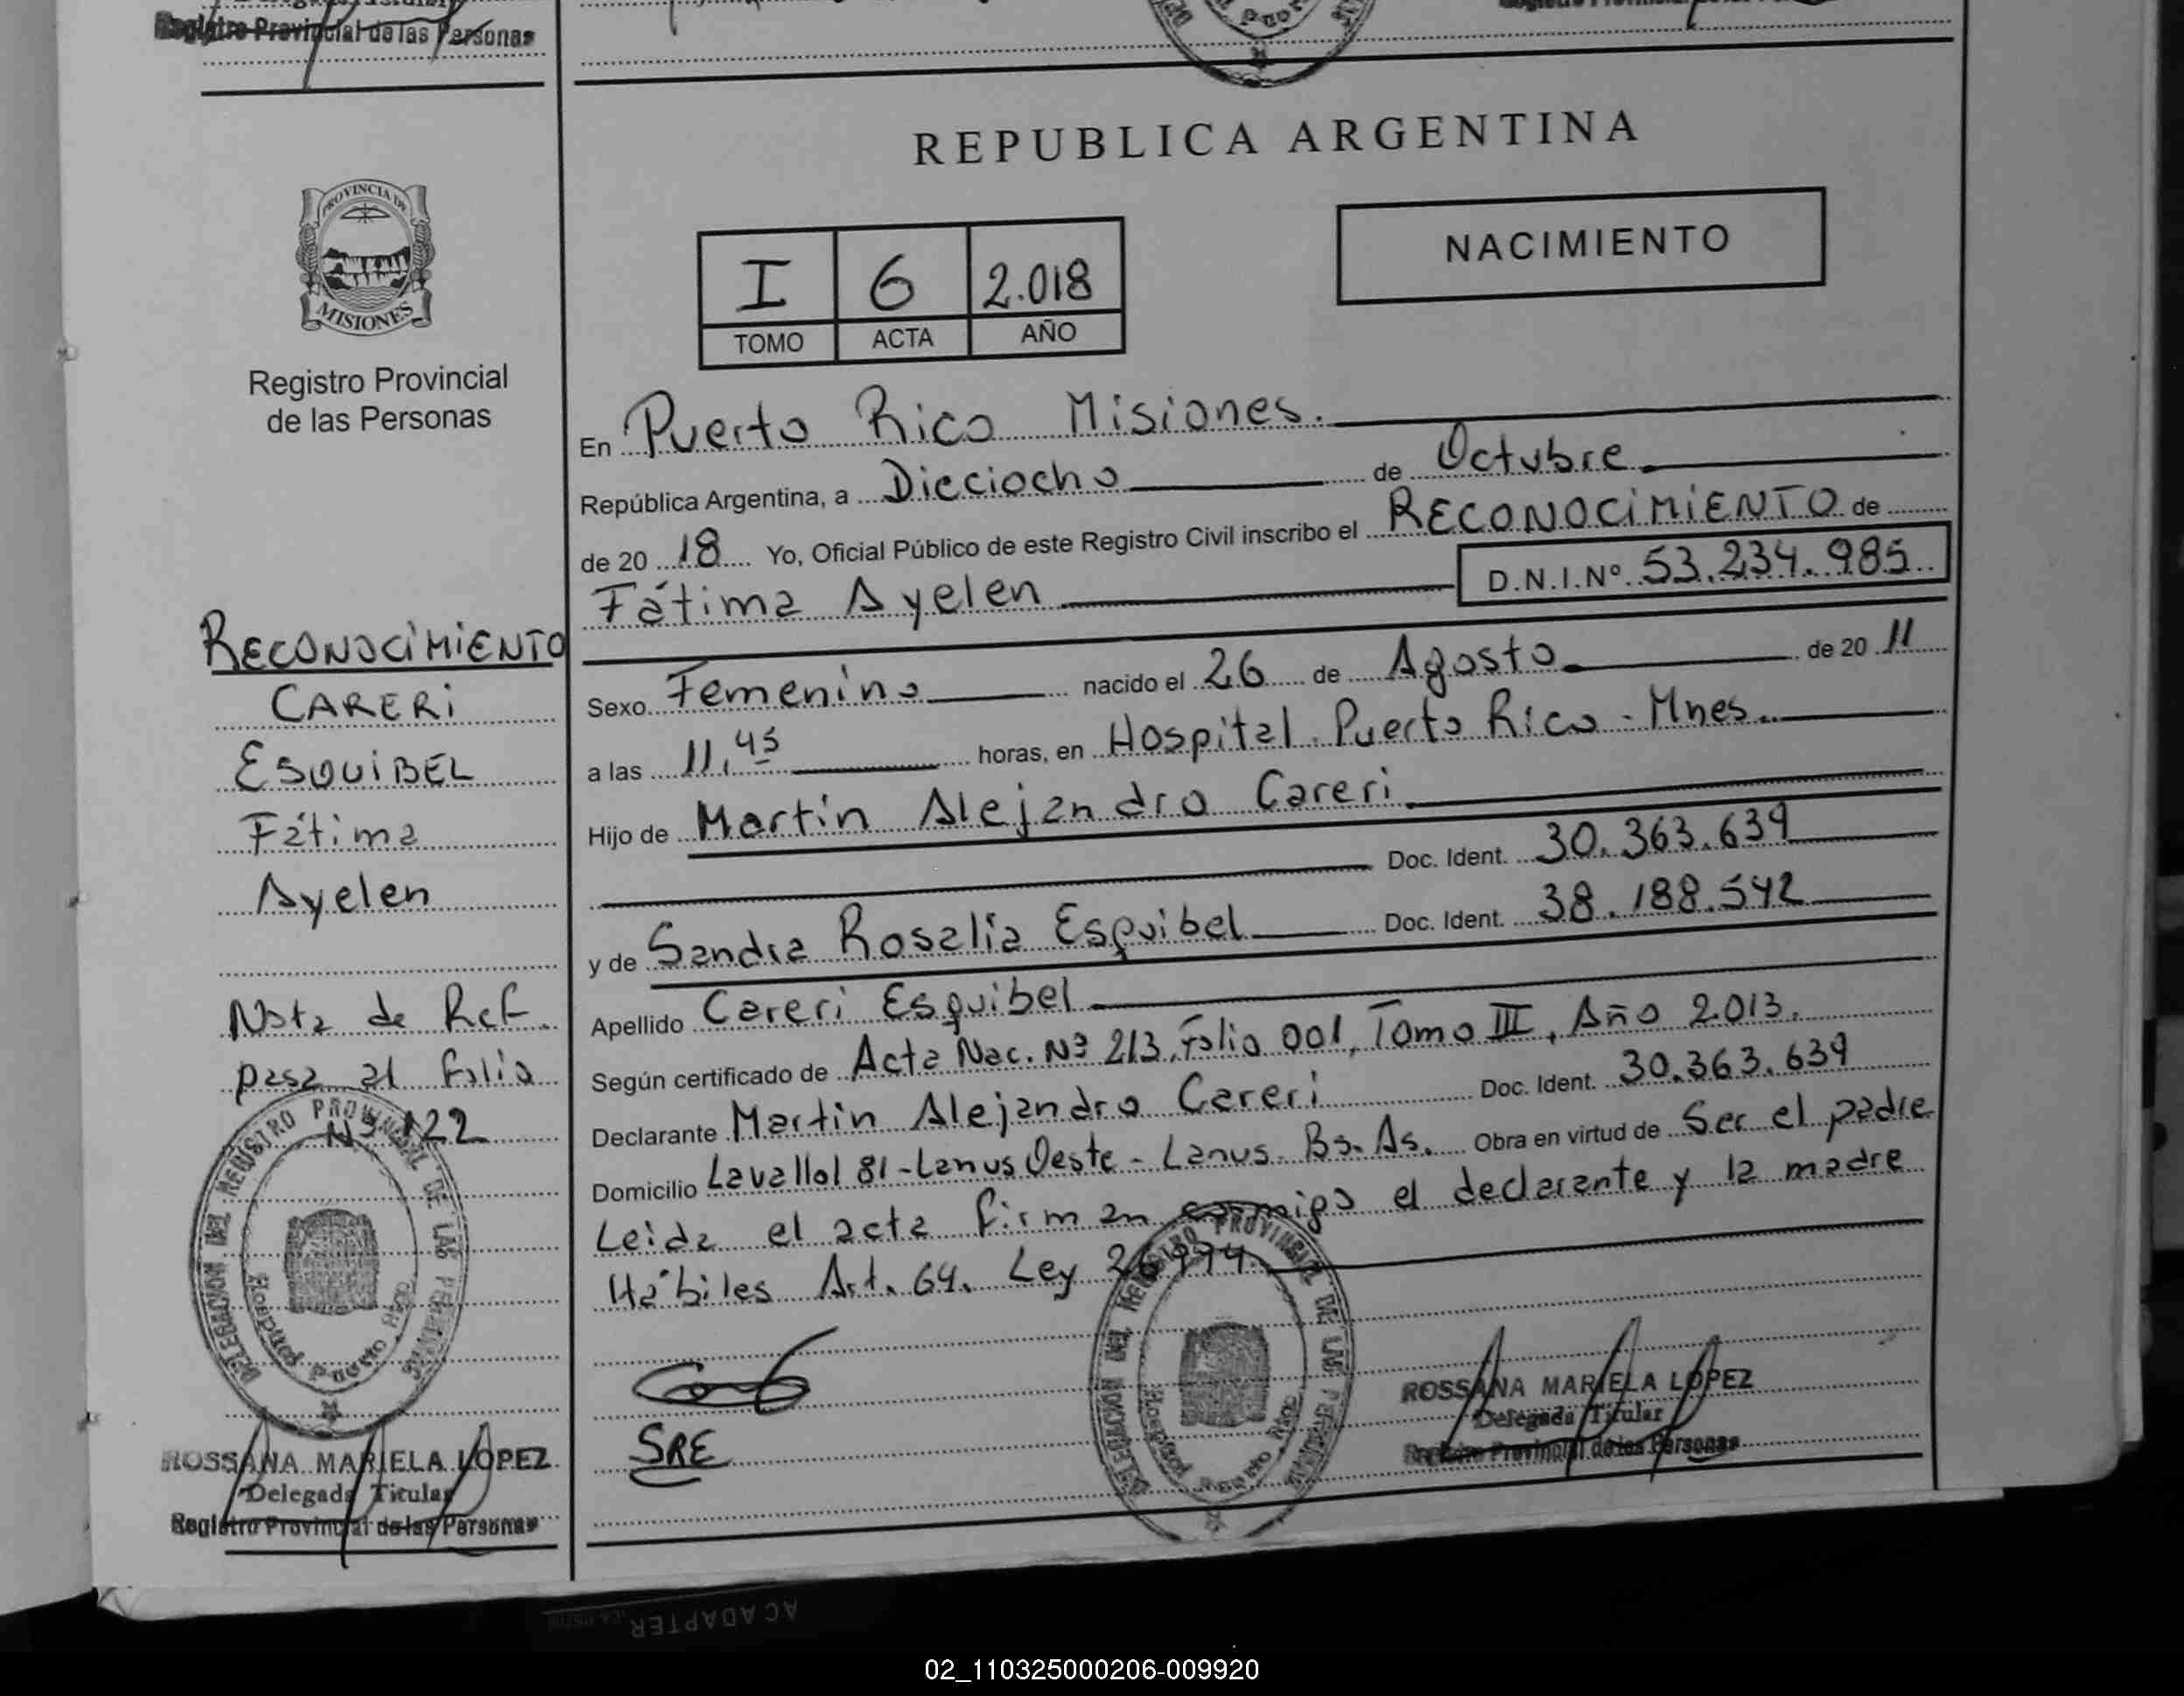 Registro Provincial de las Personas
PROVINCIA DE
MISIONES
Registro Provincial
de las Personas
RECONOCIMIENTO
CARERI
ESQUIBEL
Fátima
Ayelen
Nota de Ref.
pasa al folio
Nº 122
DELEGACION DEL REGISTRO PROVINCIAL DE LAS PERSONAS
Hospital Puerto Rico
ROSSANA MARIELA LOPEZ
Delegada Titular
Registro Provincial de las Personas
REPUBLICA ARGENTINA
NACIMIENTO
I 6 2.018
TOMO ACTA AÑO
En Puerto Rico Misiones.
República Argentina, a Dieciocho de Octubre
de 20 18 Yo, Oficial Público de este Registro Civil inscribo el RECONOCIMIENTO de
Fátima Ayelen D.N.I.Nº 53.234.985
Sexo Femenino nacido el 26 de Agosto de 20 11
a las 11,45 horas, en Hospital Puerto Rico - Mnes.
Hijo de Martín Alejandro Careri
Doc. Ident. 30.363.639
y de Sandra Rosalia Esquibel Doc. Ident. 38.188.542
Apellido Careri Esquibel
Según certificado de Acta Nac. Nº 213, Folio 001, Tomo III, Año 2.013.
Declarante Martin Alejandro Careri Doc. Ident. 30.363.639
Domicilio Lavallol 81 - Lanus Oeste - Lanus. Bs. As. Obra en virtud de Ser el padre
Leida el acta firman conmigo el declarante y la madre
Hábiles Art. 64. Ley 26994
SRE
DELEGACION DEL REGISTRO PROVINCIAL DE LAS PERSONAS
Hospital Puerto Rico
ROSSANA MARIELA LOPEZ
Delegada Titular
Registro Provincial de las Personas
AC ADAPTER
02_110325000206-009920